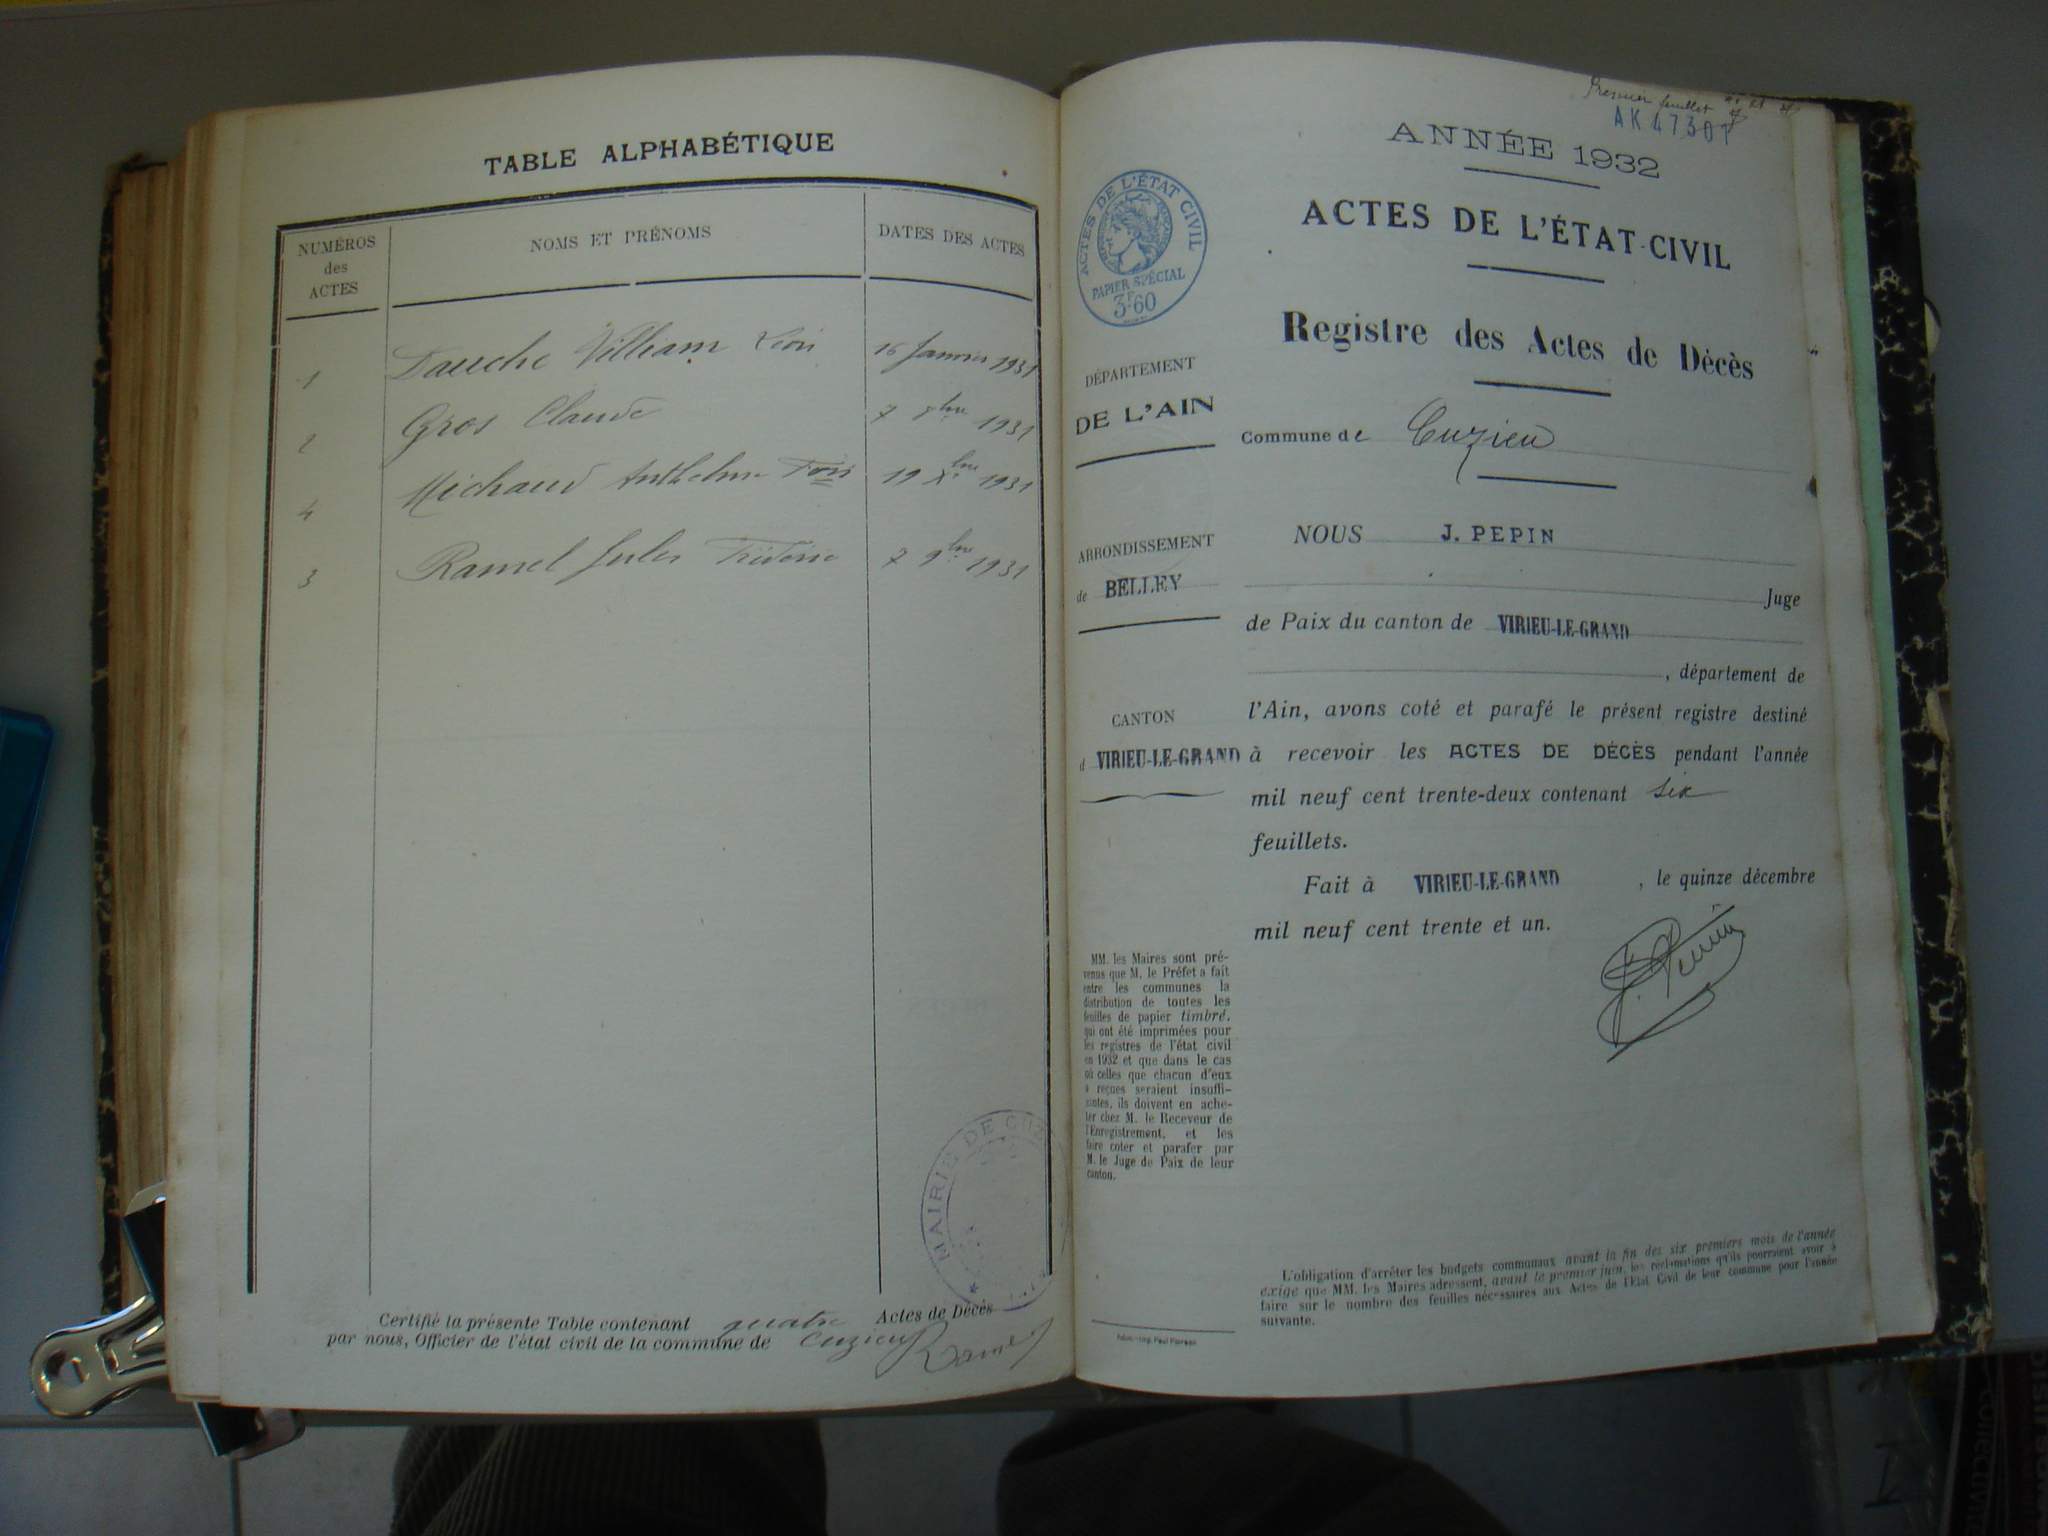 TABLE ALPHABÉTIQUE
NUMÉROS des ACTES
NOMS ET PRÉNOMS
DATES DES ACTES
1 Dauche William Léon 16 Janvier 1931
2 Gros Claude 7 1931
4 Michaud Anthelme Fois 19 Xbre 1931
3 Ramel Jules Frédéric 7 9bre 1931
MAIRIE DE CUZ
Certifié la présente Table contenant quatre Actes de Décès
par nous, Officier de l'état civil de la commune de Cuzieu
Ramel
Premier feuillet
AK47301
ANNÉE 1932
ACTES DE L'ÉTAT CIVIL
PAPIER SPÉCIAL
3F60
ACTES DE L'ÉTAT-CIVIL
Registre des Actes de Décès
DÉPARTEMENT
DE L'AIN
Commune de Cuzieu
ARRONDISSEMENT
de BELLEY
CANTON
d VIRIEU-LE-GRAND
NOUS J. PEPIN
Juge
de Paix du canton de VIRIEU-LE-GRAND
, département de
l'Ain, avons coté et parafé le présent registre destiné
à recevoir les ACTES DE DÉCÈS pendant l'année
mil neuf cent trente-deux contenant six
feuillets.
Fait à VIRIEU-LE-GRAND , le quinze décembre
mil neuf cent trente et un.
J. Pepin
MM. les Maires sont pré-
venus que M. le Préfet a fait
entre les communes la
distribution de toutes les
feuilles de papier timbré,
qui ont été imprimées pour
les registres de l'état civil
en 1932 et que dans le cas
où celles que chacun d'eux
a reçues seraient insuffi-
santes, ils doivent en ache-
ter chez M. le Receveur de
l'Enregistrement, et les
faire coter et parafer par
M. le Juge de Paix de leur
canton.
L'obligation d'arrêter les budgets communaux avant la fin des six premiers mois de l'année
exige que MM. les Maires adressent, avant le premier juin, les réclamations qu'ils pourraient avoir à
faire sur le nombre des feuilles nécessaires aux Actes de l'Etat Civil de leur commune pour l'année
suivante.